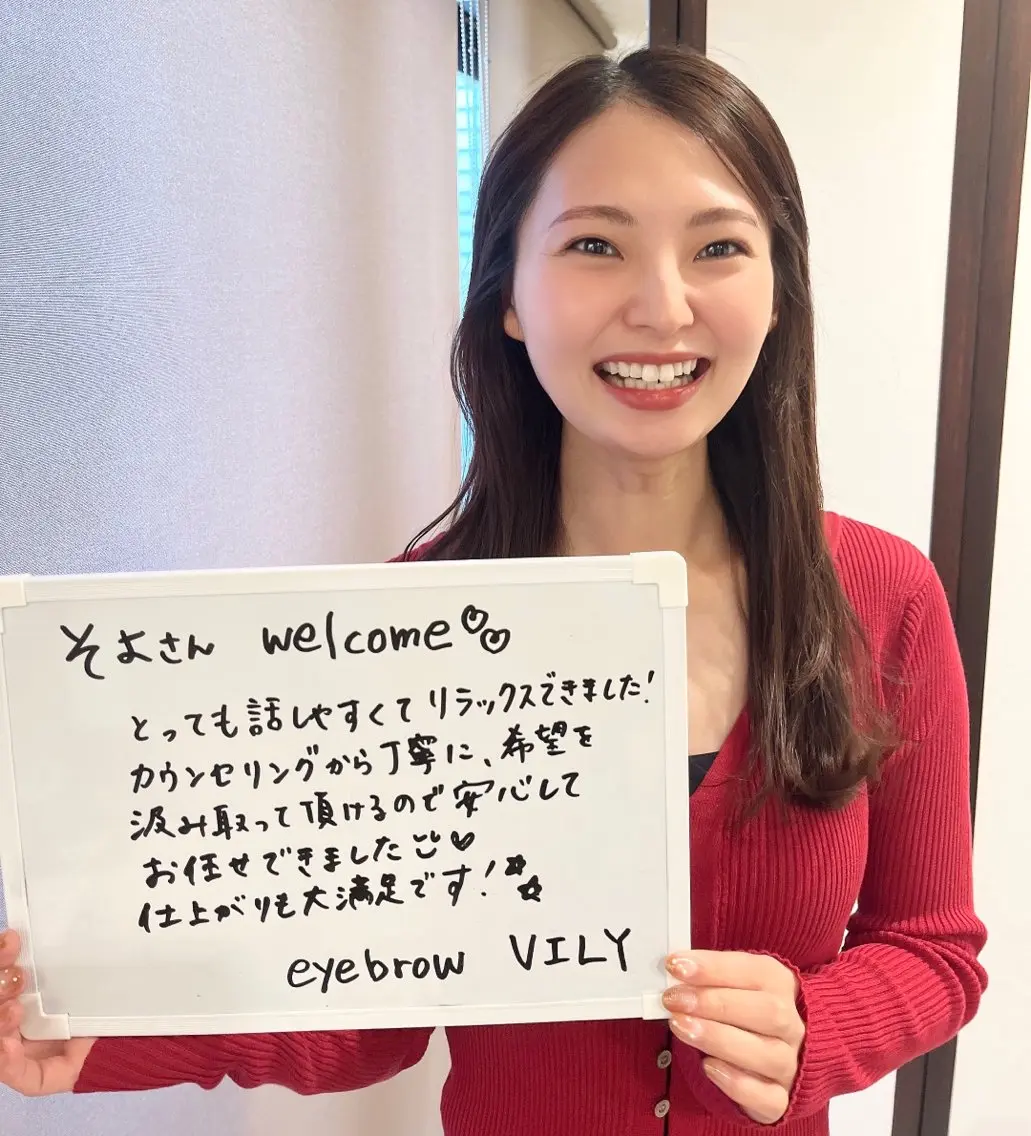 そよさん welcome♡♡
とっても話しやすくてリラックスできました!
カウンセリングから丁寧に、希望を
汲み取って頂けるので安心して
お任せできました☺♡
仕上がりも大満足です!☆☆
eyebrow VILY